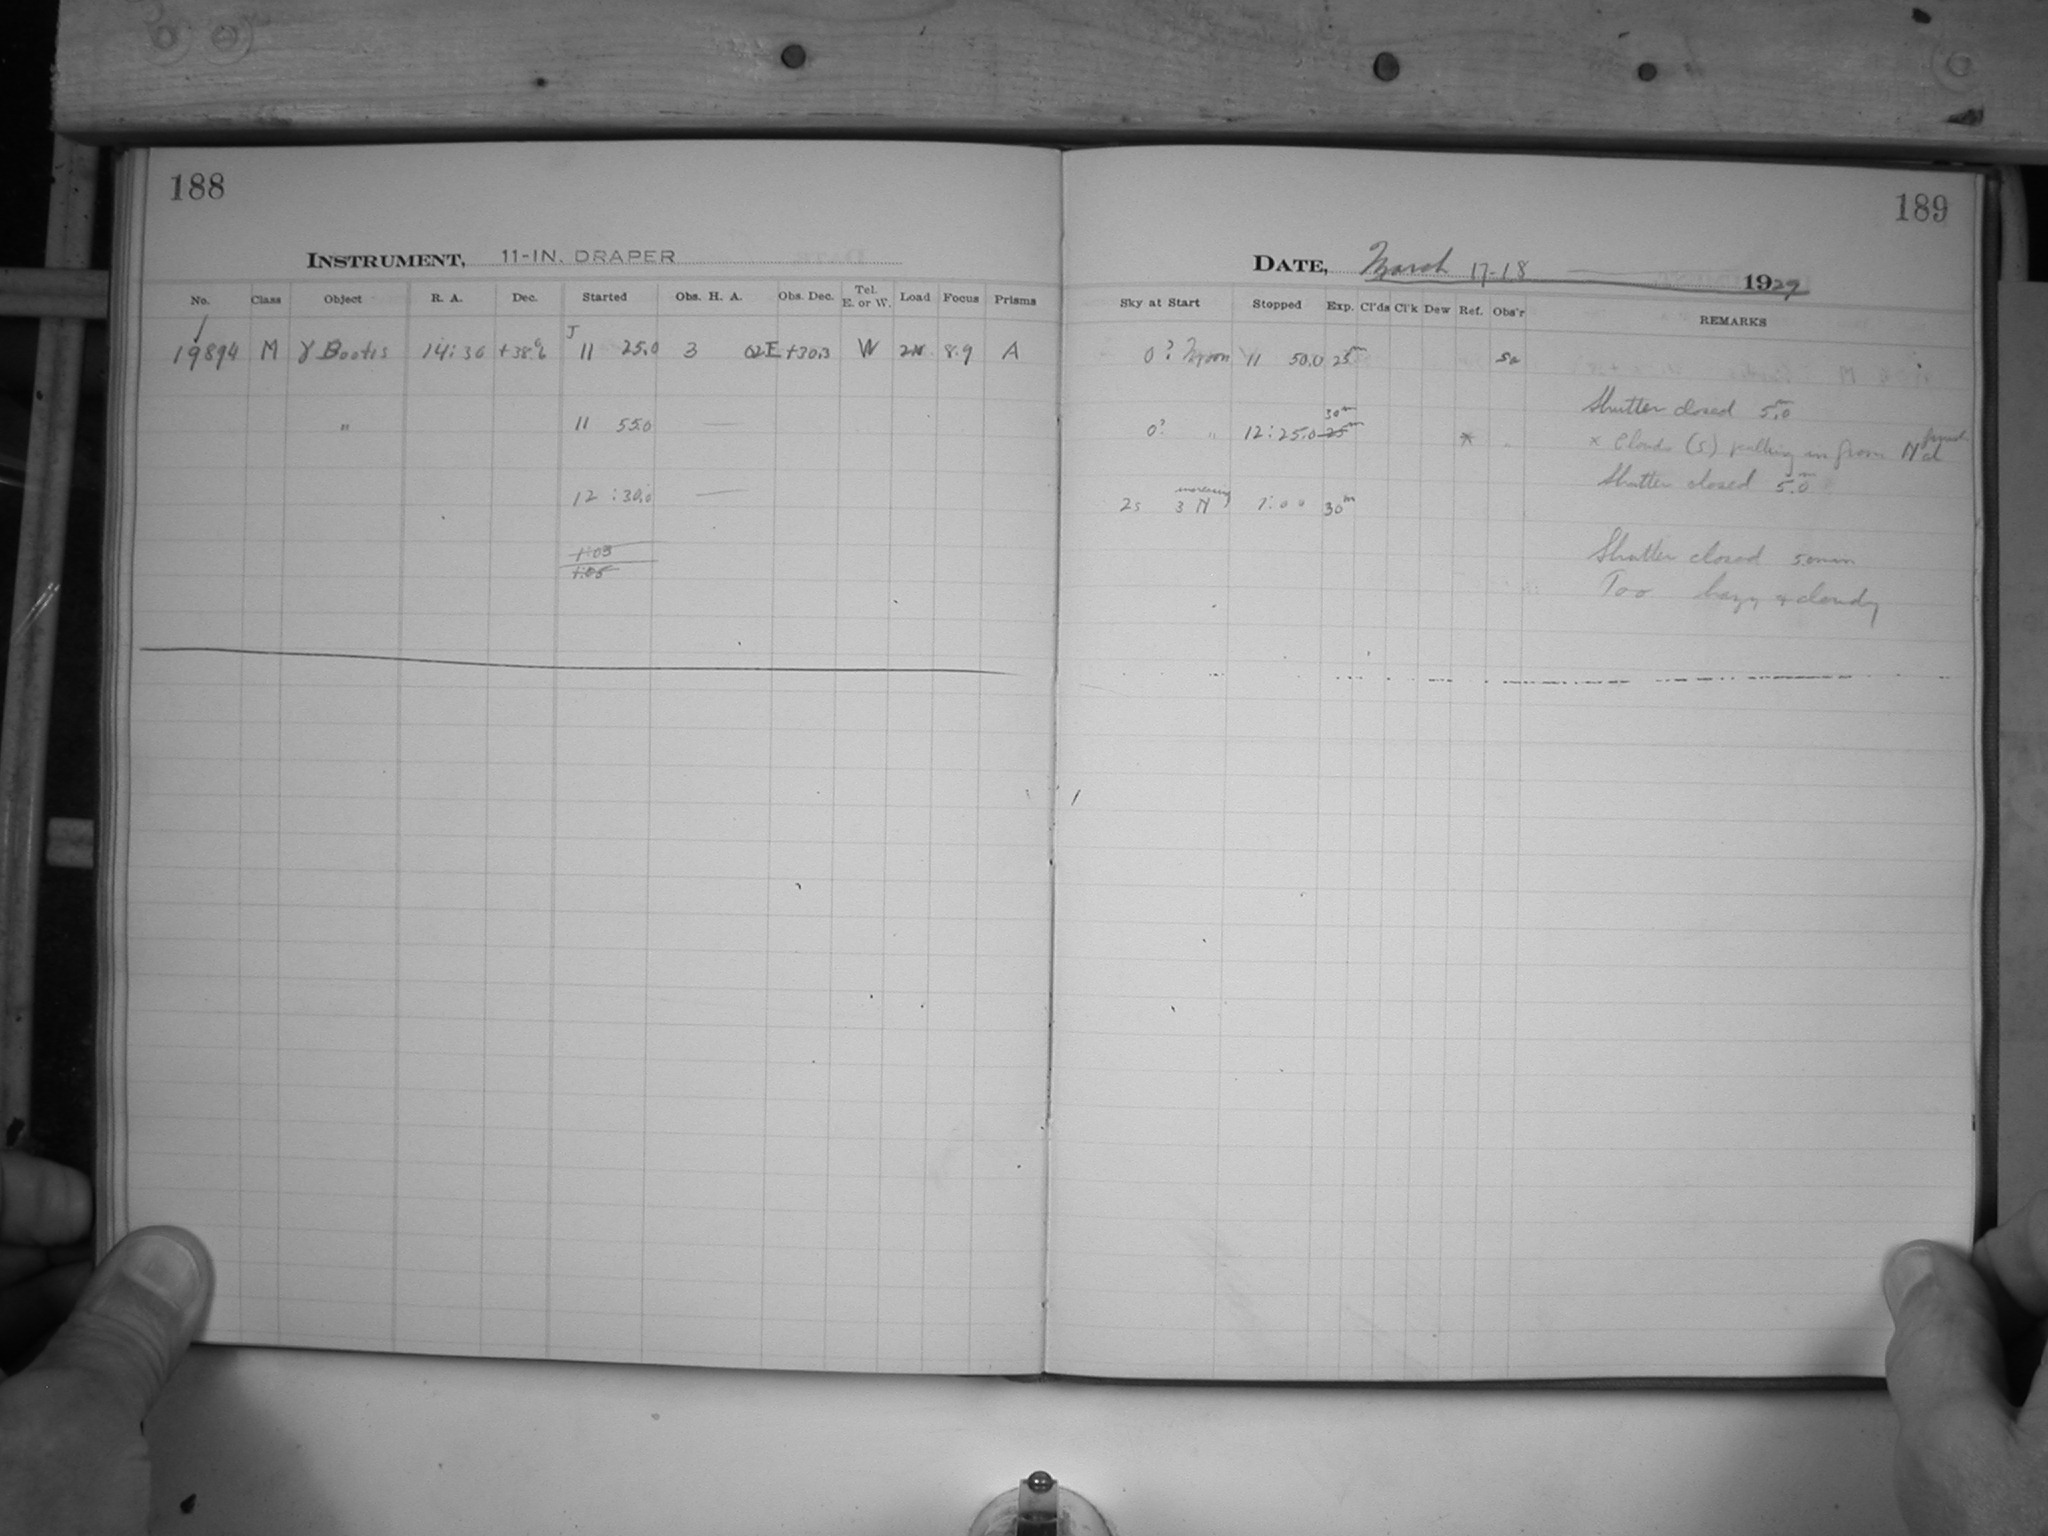 188
INSTRUMENT, 11-IN. DRAPER
No. Class Object R. A. Dec. Started Obs. H. A. Obs. Dec. Tel. E. or W. Load Focus Prisms
J
19894 M γ Bootis 14:30 11 25.0 3 02E +30.3 W 2N 8.9 A
" 11 55.0 —
12 :30.0 —
1:03
1:05
189
DATE, March 17-18 1929
Sky at Start Stopped Exp. Cl'ds Cl'k Dew Ref. Obs'r REMARKS
0? Moon 11 50.0 25m Sa
Shutter closed 5.0m
30m
0? " 12:25.0 25m * "
× Clouds (5) in from N
Shutter closed 5.0m
increasing
2s 3 N 1:00 30m
Shutter closed 5.0min
Too hazy & cloudy